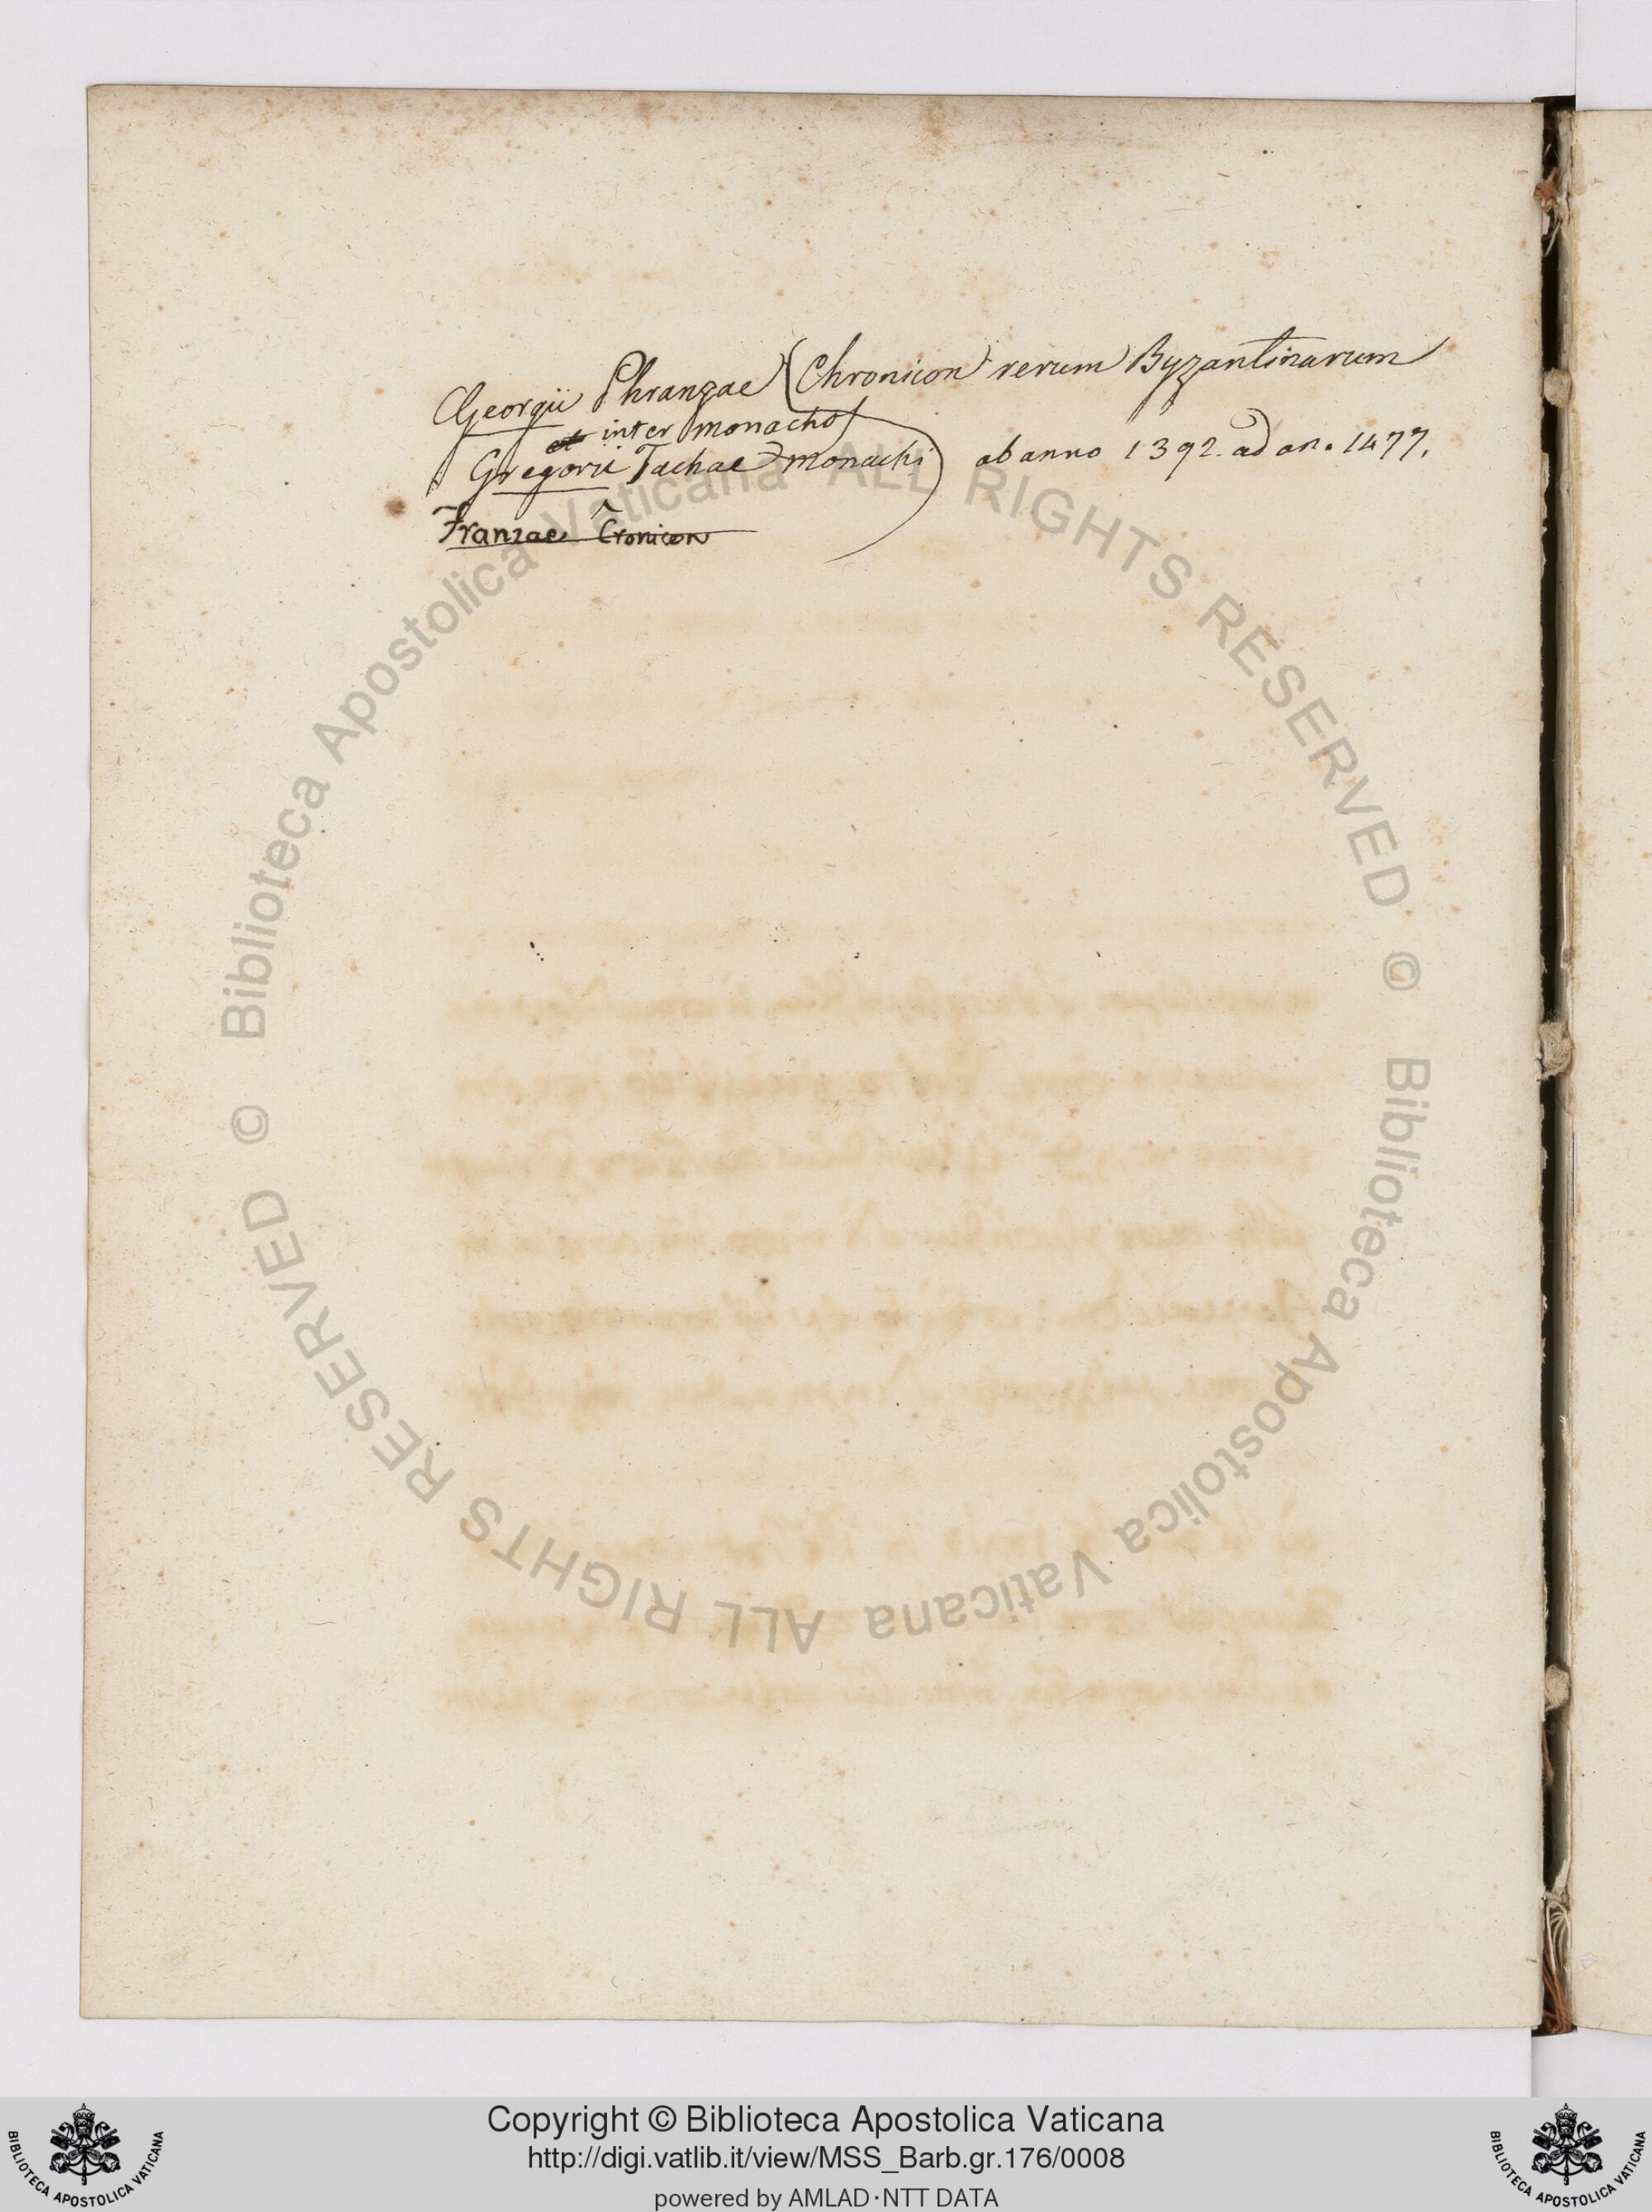 Georgii Phranzae Chronicon rerum Byzantinarum
et inter monachos
Gregorii Tachae monachi ab anno 1392. ad an. 1477.
Franzae Cronicon
© Biblioteca Apostolica Vaticana ALL RIGHTS RESERVED
© Biblioteca Apostolica Vaticana ALL RIGHTS RESERVED
Copyright © Biblioteca Apostolica Vaticana
http://digi.vatlib.it/view/MSS_Barb.gr.176/0008
powered by AMLAD·NTT DATA
BIBLIOTECA APOSTOLICA VATICANA
BIBLIOTECA APOSTOLICA VATICANA